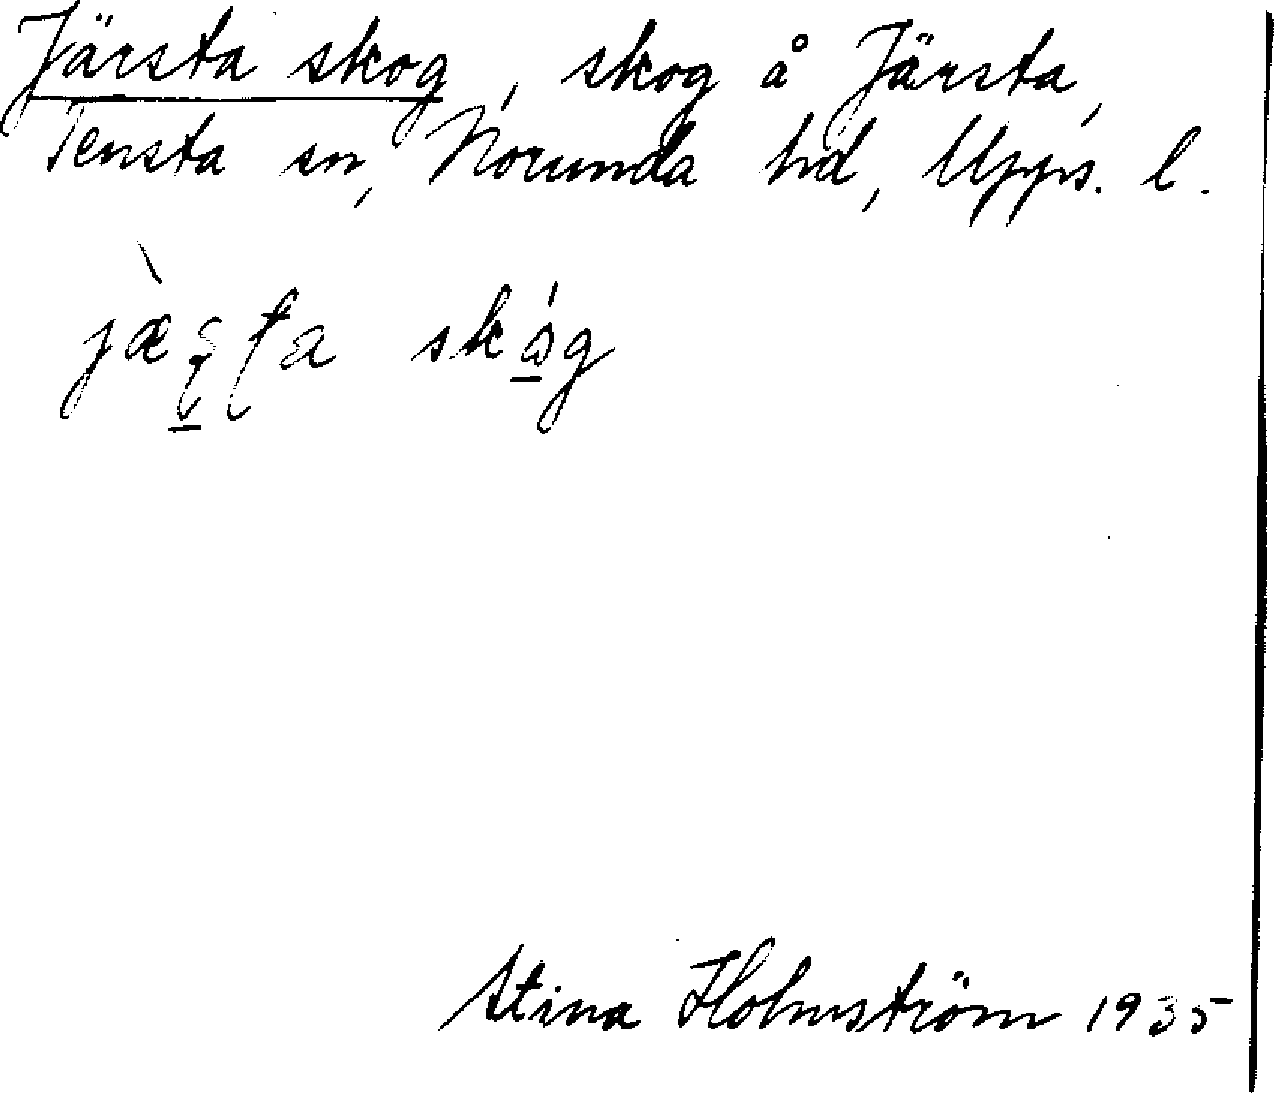 Järsta skog, skog å Järsta,
Tensta sn, Norunda hd, Upps. l.
Stina Holmström 1935